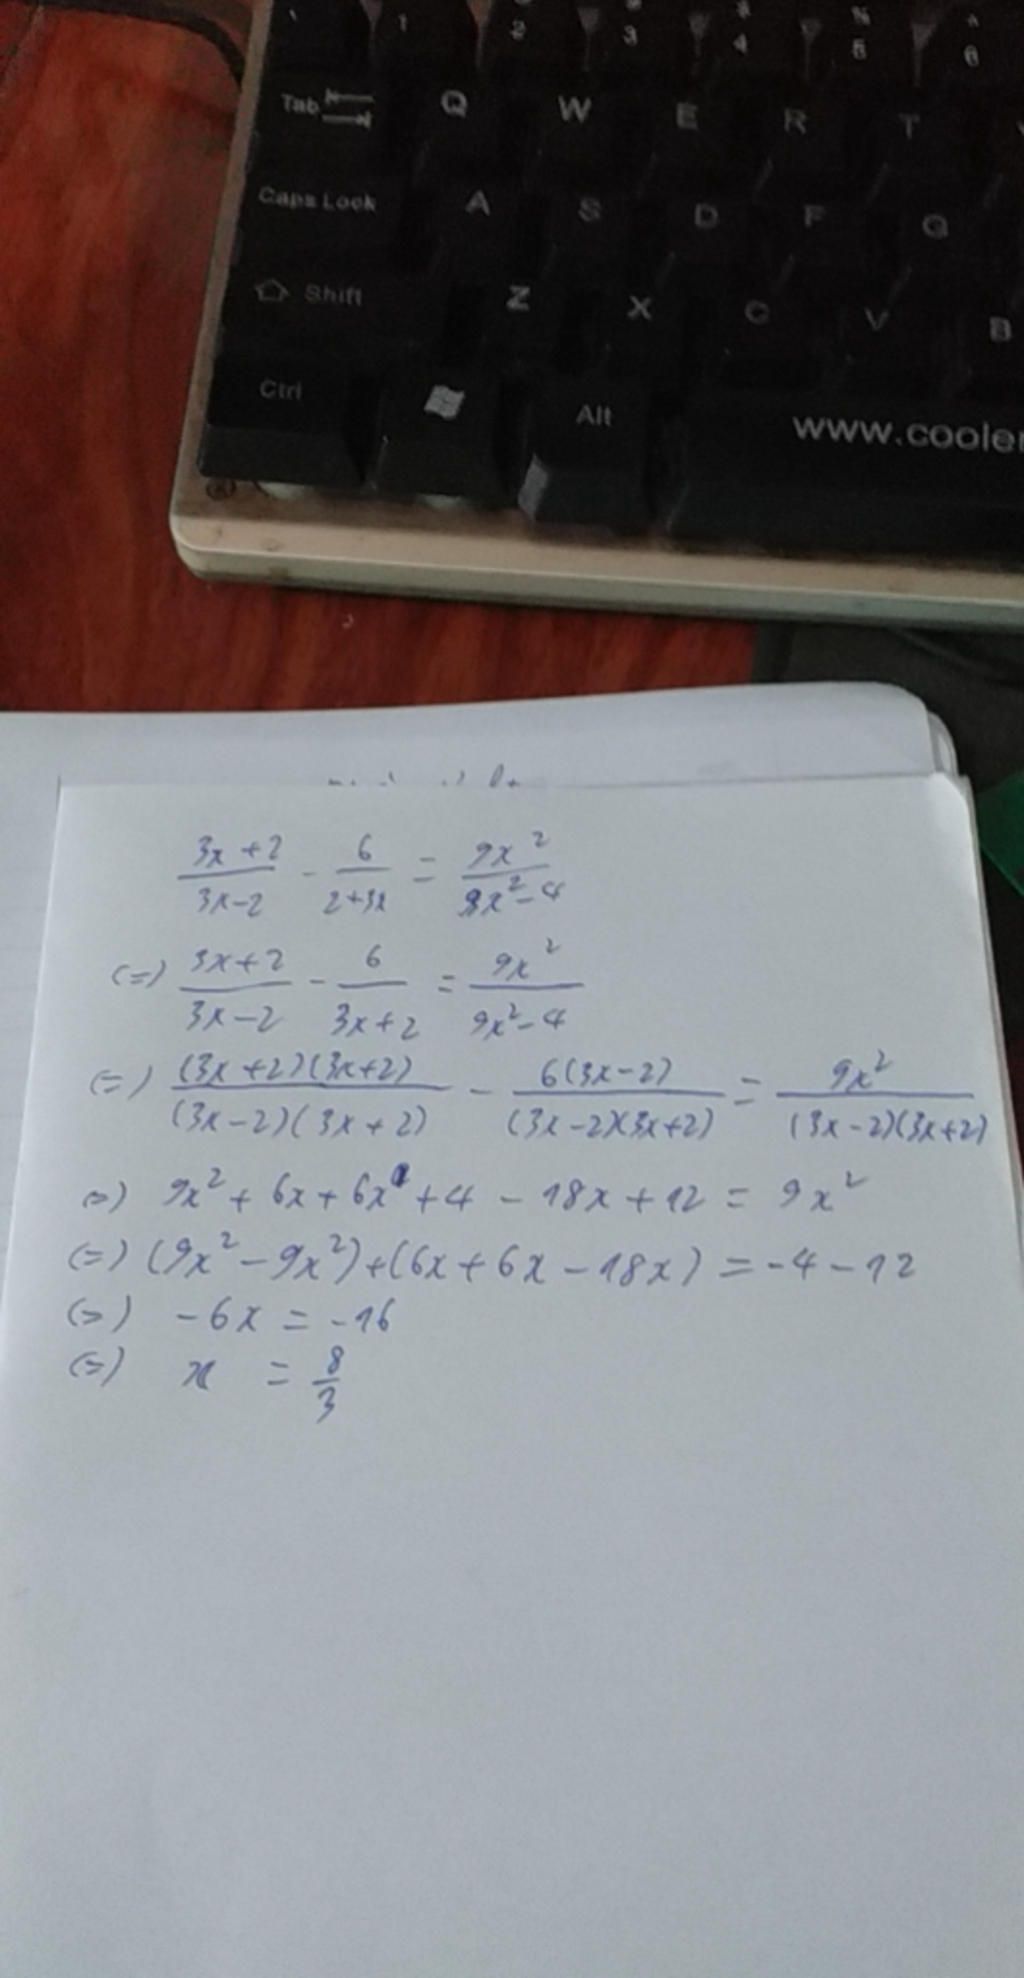 ` 1 2 3 4 5 6
Tab Q W E R T
Caps Lock A S D F G
Shift Z X C V B
Ctrl Alt www.cooler
(3x+2)/(3x-2) - 6/(2+3x) = 9x²/(9x²-4)
(=) (3x+2)/(3x-2) - 6/(3x+2) = 9x²/(9x²-4)
(=) (3x+2)(3x+2)/(3x-2)(3x+2) - 6(3x-2)/(3x-2)(3x+2) = 9x²/(3x-2)(3x+2)
(=) 9x² + 6x + 6x + 4 - 18x + 12 = 9x²
(=) (9x² - 9x²) + (6x + 6x - 18x) = -4 - 12
(=) -6x = -16
(=) x = 8/3